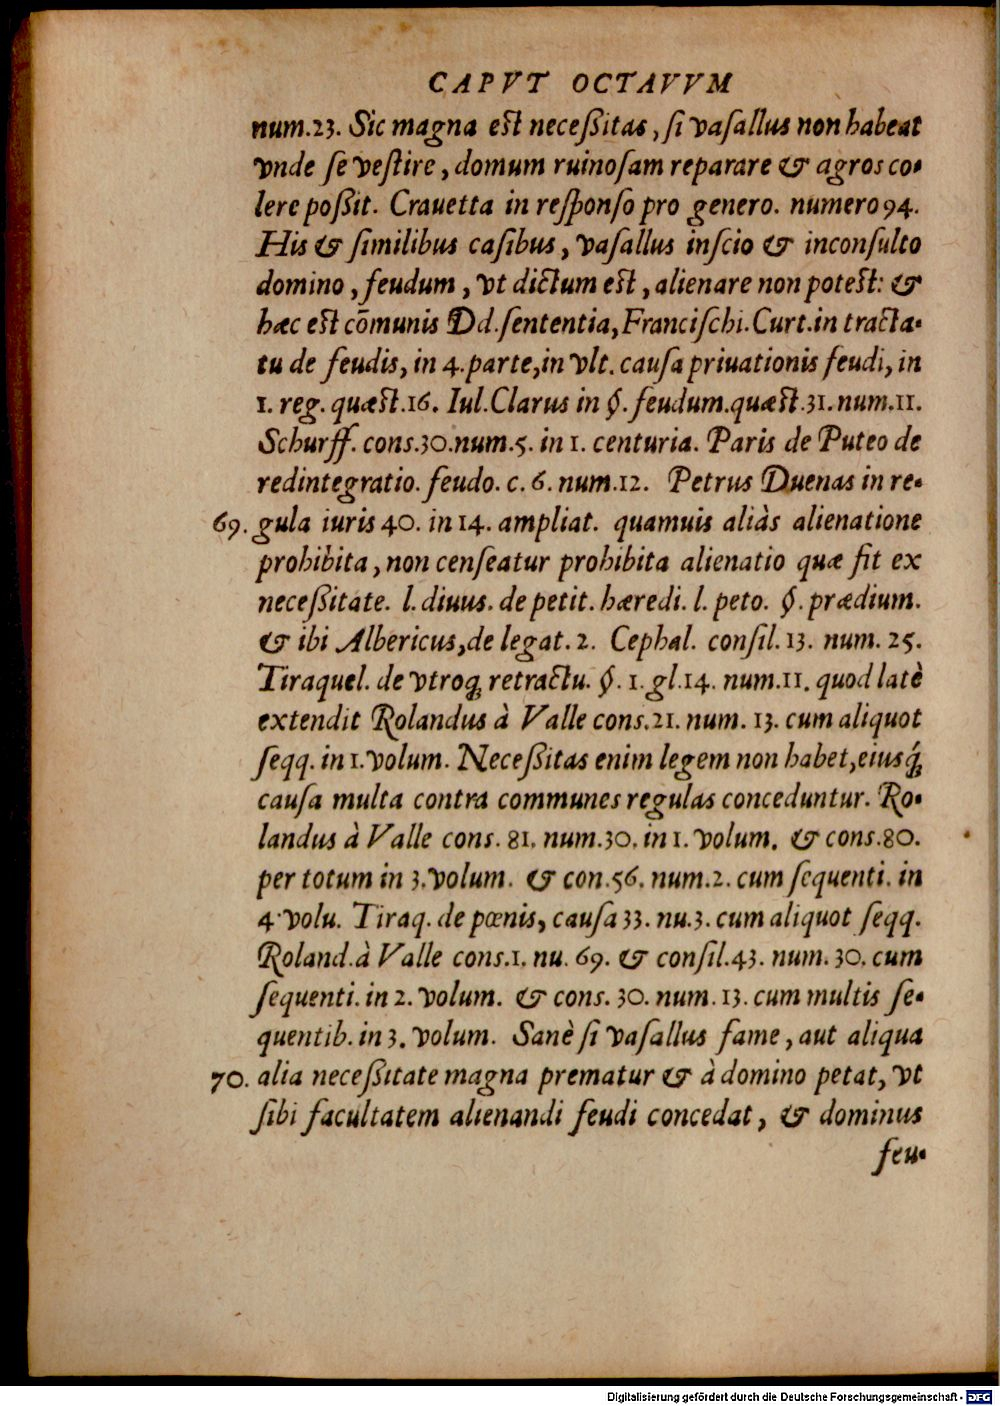 CAPVT OCTAVVM
num.23. Sic magna est neceſßitas, ſi vaſallus non habeat
vnde ſe veſtire, domum ruinoſam reparare & agros co-
lere poſßit. Crauetta in reſponſo pro genero. numero 94.
His & ſimilibus caſibus, vaſallus inſcio & inconſulto
domino, feudum, vt dictum est, alienare non potest: &
hæc est cōmunis Dd. ſententia, Franciſchi. Curt. in tracta-
tu de feudis, in 4. parte, in vlt. cauſa priuationis feudi, in
1. reg. quæst. 16. Iul. Clarus in §. feudum. quæst. 31. num. 11.
Schurff. cons. 30. num. 5. in 1. centuria. Paris de Puteo de
redintegratio. feudo. c. 6. num. 12. Petrus Duenas in re-
69. gula iuris 40. in 14. ampliat. quamuis aliàs alienatione
prohibita, non cenſeatur prohibita alienatio quæ fit ex
neceſßitate. l. diuus. de petit. hæredi. l. peto. §. prædium.
& ibi Albericus, de legat. 2. Cephal. conſil. 13. num. 25.
Tiraquel. de vtroq; retractu. §. 1. gl. 14. num. 11. quod latè
extendit Rolandus à Valle cons. 21. num. 13. cum aliquot
ſeqq. in 1. volum. Neceſßitas enim legem non habet, eiusq́;
cauſa multa contra communes regulas conceduntur. Ro-
landus à Valle cons. 81. num. 30. in 1. volum. & cons. 80.
per totum in 3. volum. & con. 56. num. 2. cum ſequenti. in
4. volu. Tiraq. de pœnis, cauſa 33. nu. 3. cum aliquot ſeqq.
Roland. à Valle cons. 1. nu. 69. & conſil. 43. num. 30. cum
ſequenti. in 2. volum. & cons. 30. num. 13. cum multis ſe-
quentib. in 3. volum. Sanè ſi vaſallus fame, aut aliqua
70. alia neceſßitate magna prematur & à domino petat, vt
ſibi facultatem alienandi feudi concedat, & dominus
feu-
Digitalisierung gefördert durch die Deutsche Forschungsgemeinschaft - DFG